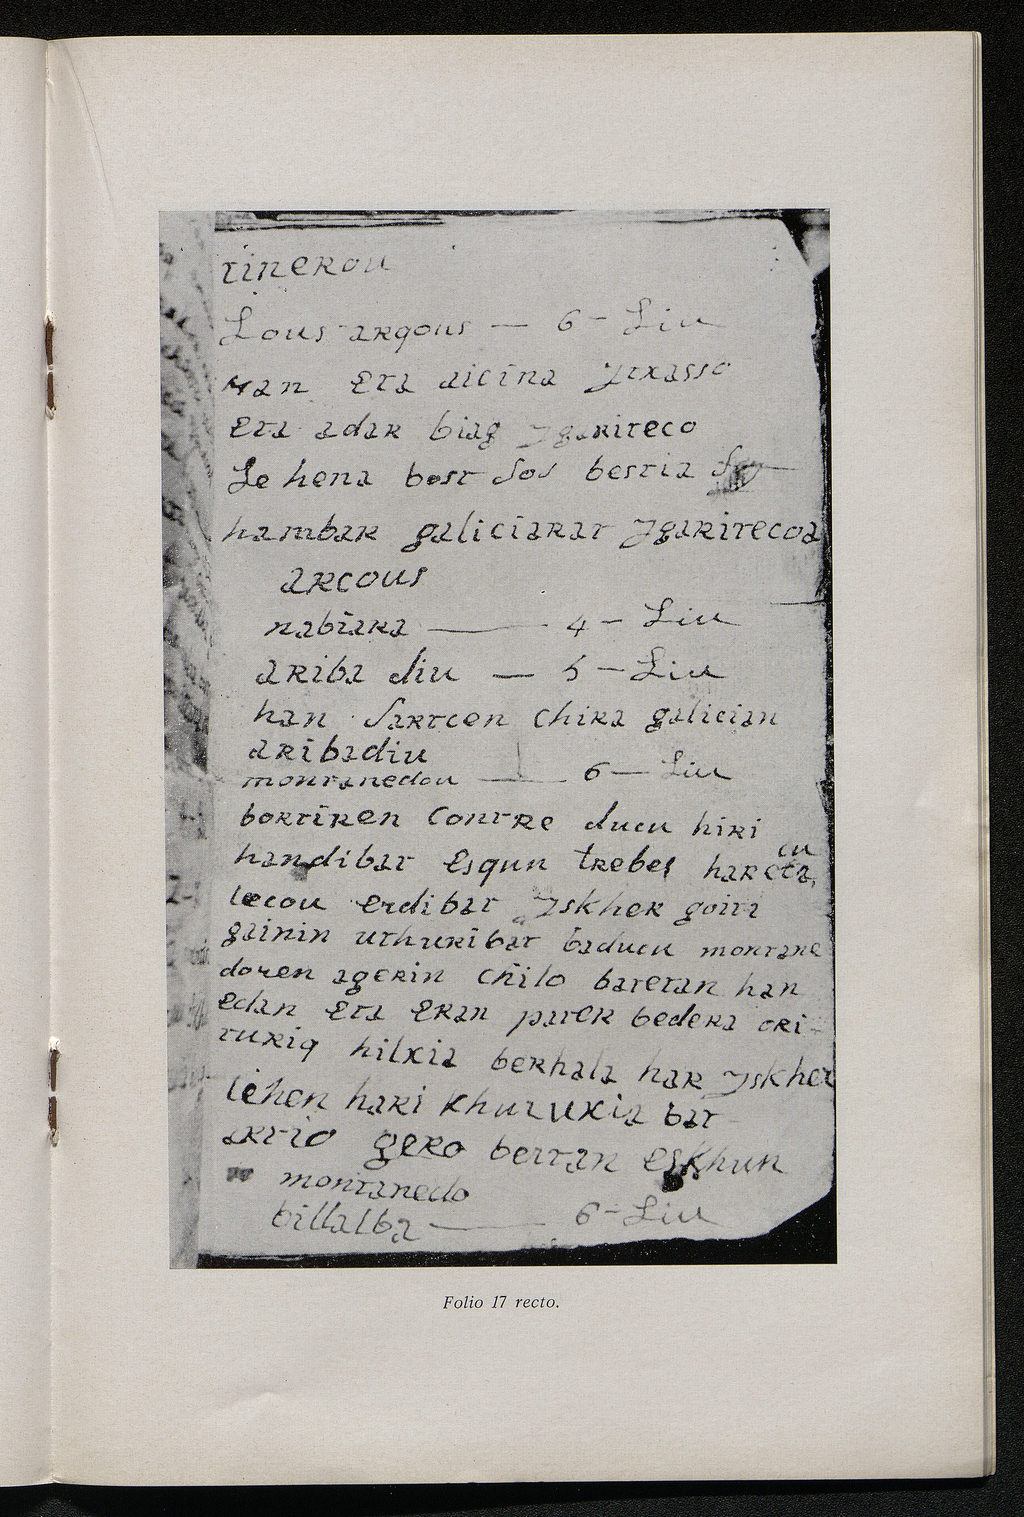 tinerou
Lous arqous — 6 - Liu
man eta aicina Jtxasso
eta adar biag Jgarireco
Le hena bost sos bestia
hambar galiciarat Jgarirecoa
arcous
nabiara — 4 - Liu
ariba diu — 5 - Liu
han sartcen chira galician
aribadiu
montanedou — 6 — Liu
bortiren contre ducu hiri
handibat esqun trebes harcta
cu
lecou erdibat Jskher goiti
gainin uthuribat baducu montane
doren agerin chilo batetan han
edan eta eran pater bedera ori-
turiq hilxia berhala har Jskher
lehen hari khuruxia bat
artio gero bertan eskhun
montanedo
billalba — 6 - Liu
Folio 17 recto.